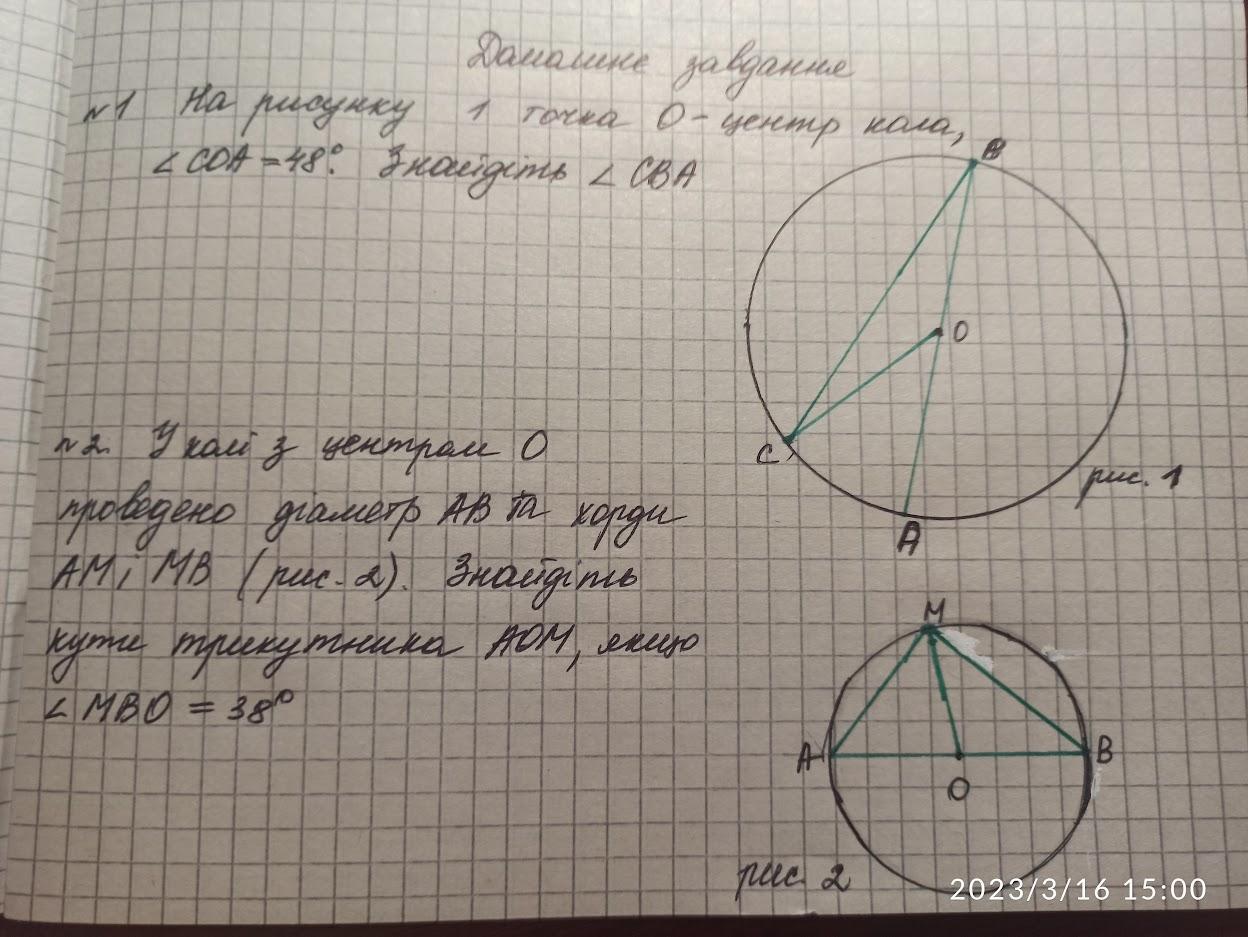 Домашнє завдання
№1 На рисунку 1 точка О - центр кола,
∠COA = 48°. Знайдіть ∠CBA
B
O
C
A
рис. 1
№2. У колі з центром О
проведено діаметр АВ та хорди
АМ і МВ (рис. 2). Знайдіть
кути трикутника АОМ, якщо
∠МВО = 38°
M
A
B
O
рис. 2
2023/3/16 15:00